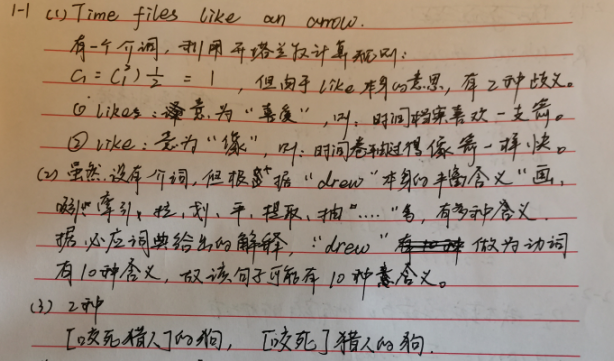 1-1 (1) Time files like an arrow.
有一个介词，利用开塔兰数计算规则：
C₁ = (²₁)½ = 1，但由于like本身的意思，有2种歧义。
① likes：意为“喜爱”，则：时间档案喜欢一支箭。
② like：意为“像”，则：时间卷宗过得像箭一样快。
(2) 虽然没有介词，但根据“drew”本身的含义“画，
吸引，牵引、拉，划，平，提取、抽”……”等，有多种含义.
据必应词典给出的解释，“drew”做为动词
有10种含义，故该句子可能有10种含义。
(3) 2种
[咬死猎人]的狗，[咬死]猎人的狗.